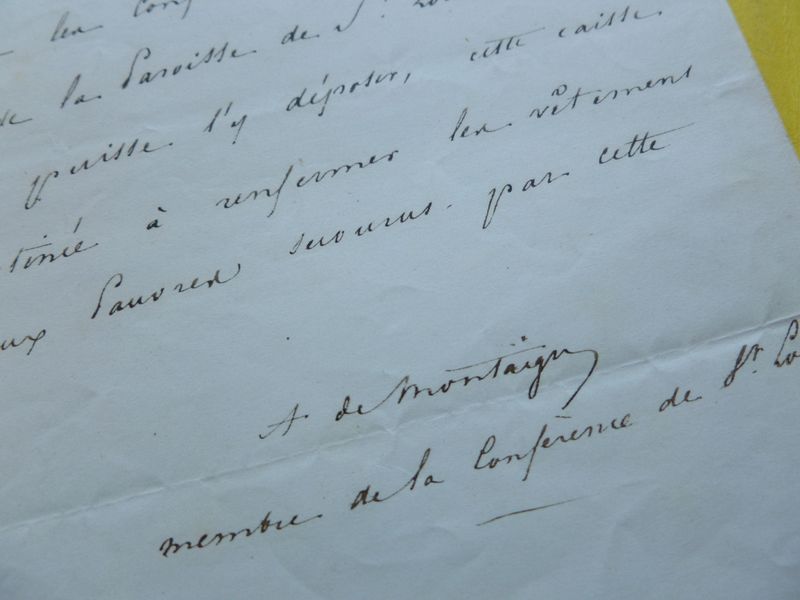 les Conf
de la Paroisse de St. Lo
puisse l'y déposer, cette caisse
tinée à renfermer les vêtements
aux Pauvres secourus par cette
A de Montaigu
membre de la Conférence de St. Lo